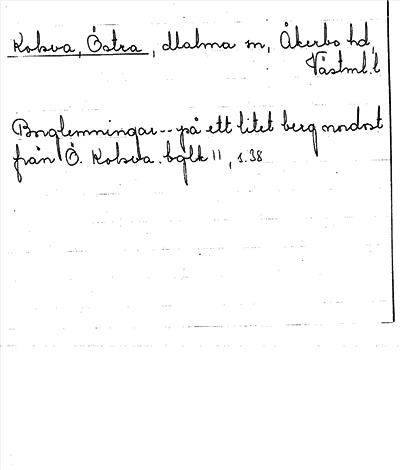 Kolsva, Östra, Malma sn, Åkerbo hd,
Västml. l
Borglemningar -- på ett litet berg nordost
från Ö. Kolsva. bglk 11, s. 38